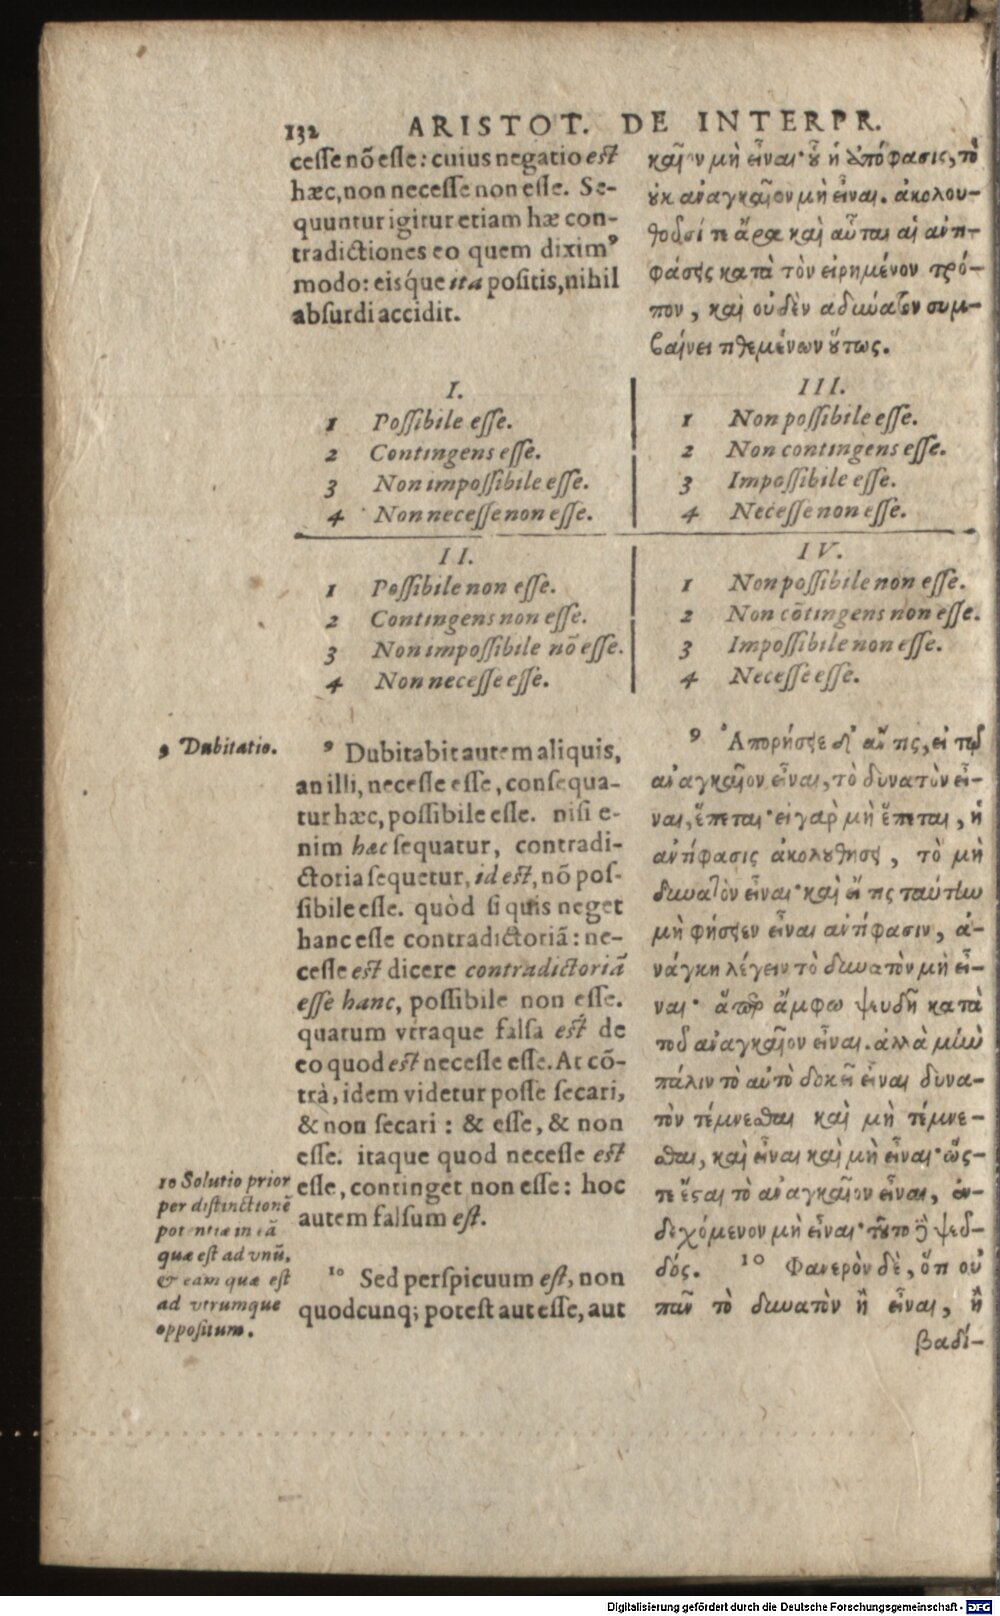 132 ARISTOT. DE INTERPR.
cesse nõ esse: cuius negatio est
hæc, non necesse non esse. Se-
quuntur igitur etiam hæ con-
tradictiones eo quem diximꝰ
modo: eisque ita positis, nihil
absurdi accidit.
καῖον μὴ εἶναι· οὗ ἡ ἀπόφασις, τὸ
οὐκ ἀναγκαῖον μὴ εἶναι. ἀκολου-
θοῦσί τε ἄρα καὶ αὗται αἱ ἀντι-
φάσεις κατὰ τὸν εἰρημένον τρό-
πον, καὶ οὐδὲν ἀδύνατον συμ-
βαίνει τιθεμένων οὕτως.
I.
1 Possibile esse.
2 Contingens esse.
3 Non impossibile esse.
4 Non necesse non esse.
III.
1 Non possibile esse.
2 Non contingens esse.
3 Impossibile esse.
4 Necesse non esse.
II.
1 Possibile non esse.
2 Contingens non esse.
3 Non impossibile nõ esse.
4 Non necesse esse.
IV.
1 Non possibile non esse.
2 Non cõtingens non esse.
3 Impossibile non esse.
4 Necesse esse.
9 Dubitatio.
9 Dubitabit autem aliquis,
an illi, necesse esse, consequa-
tur hæc, possibile esse. nisi e-
nim hæc sequatur, contradi-
ctoria sequetur, id est, nõ pos-
sibile esse. quòd si quis neget
hanc esse contradictoriã: ne-
cesse est dicere contradictoriã
esse hanc, possibile non esse.
quarum vtraque falsa est de
eo quod est necesse esse. At cõ-
trà, idem videtur posse secari,
& non secari: & esse, & non
esse. itaque quod necesse est
esse, continget non esse: hoc
autem falsum est.
10 Solutio prior
per distinctionẽ
potentiæ in eã
quæ est ad vnũ,
& eam quæ est
ad vtrumque
oppositum.
10 Sed perspicuum est, non
quodcunq; potest aut esse, aut
9 Ἀπορήσειε δ' ἄν τις, εἰ τῷ
ἀναγκαῖον εἶναι, τὸ δυνατὸν εἶ-
ναι, ἕπεται· εἰ γὰρ μὴ ἕπεται, ἡ
ἀντίφασις ἀκολουθήσει, τὸ μὴ
δυνατὸν εἶναι· καὶ εἴ τις ταύτην
μὴ φήσειεν εἶναι ἀντίφασιν, ἀ-
νάγκη λέγειν τὸ δυνατὸν μὴ εἶ-
ναι· ἅπερ ἄμφω ψευδῆ κατὰ
τοῦ ἀναγκαῖον εἶναι. ἀλλὰ μὴν
πάλιν τὸ αὐτὸ δοκεῖ εἶναι δυνα-
τὸν τέμνεσθαι καὶ μὴ τέμνε-
σθαι, καὶ εἶναι καὶ μὴ εἶναι· ὥς-
τε ἔσται τὸ ἀναγκαῖον εἶναι, ἐν-
δεχόμενον μὴ εἶναι· τοῦτο δὲ ψεῦ-
δός. 10 Φανερὸν δὲ, ὅτι οὐ
πᾶν τὸ δυνατὸν ἢ εἶναι, ἢ
βαδί-
Digitalisierung gefördert durch die Deutsche Forschungsgemeinschaft - DFG